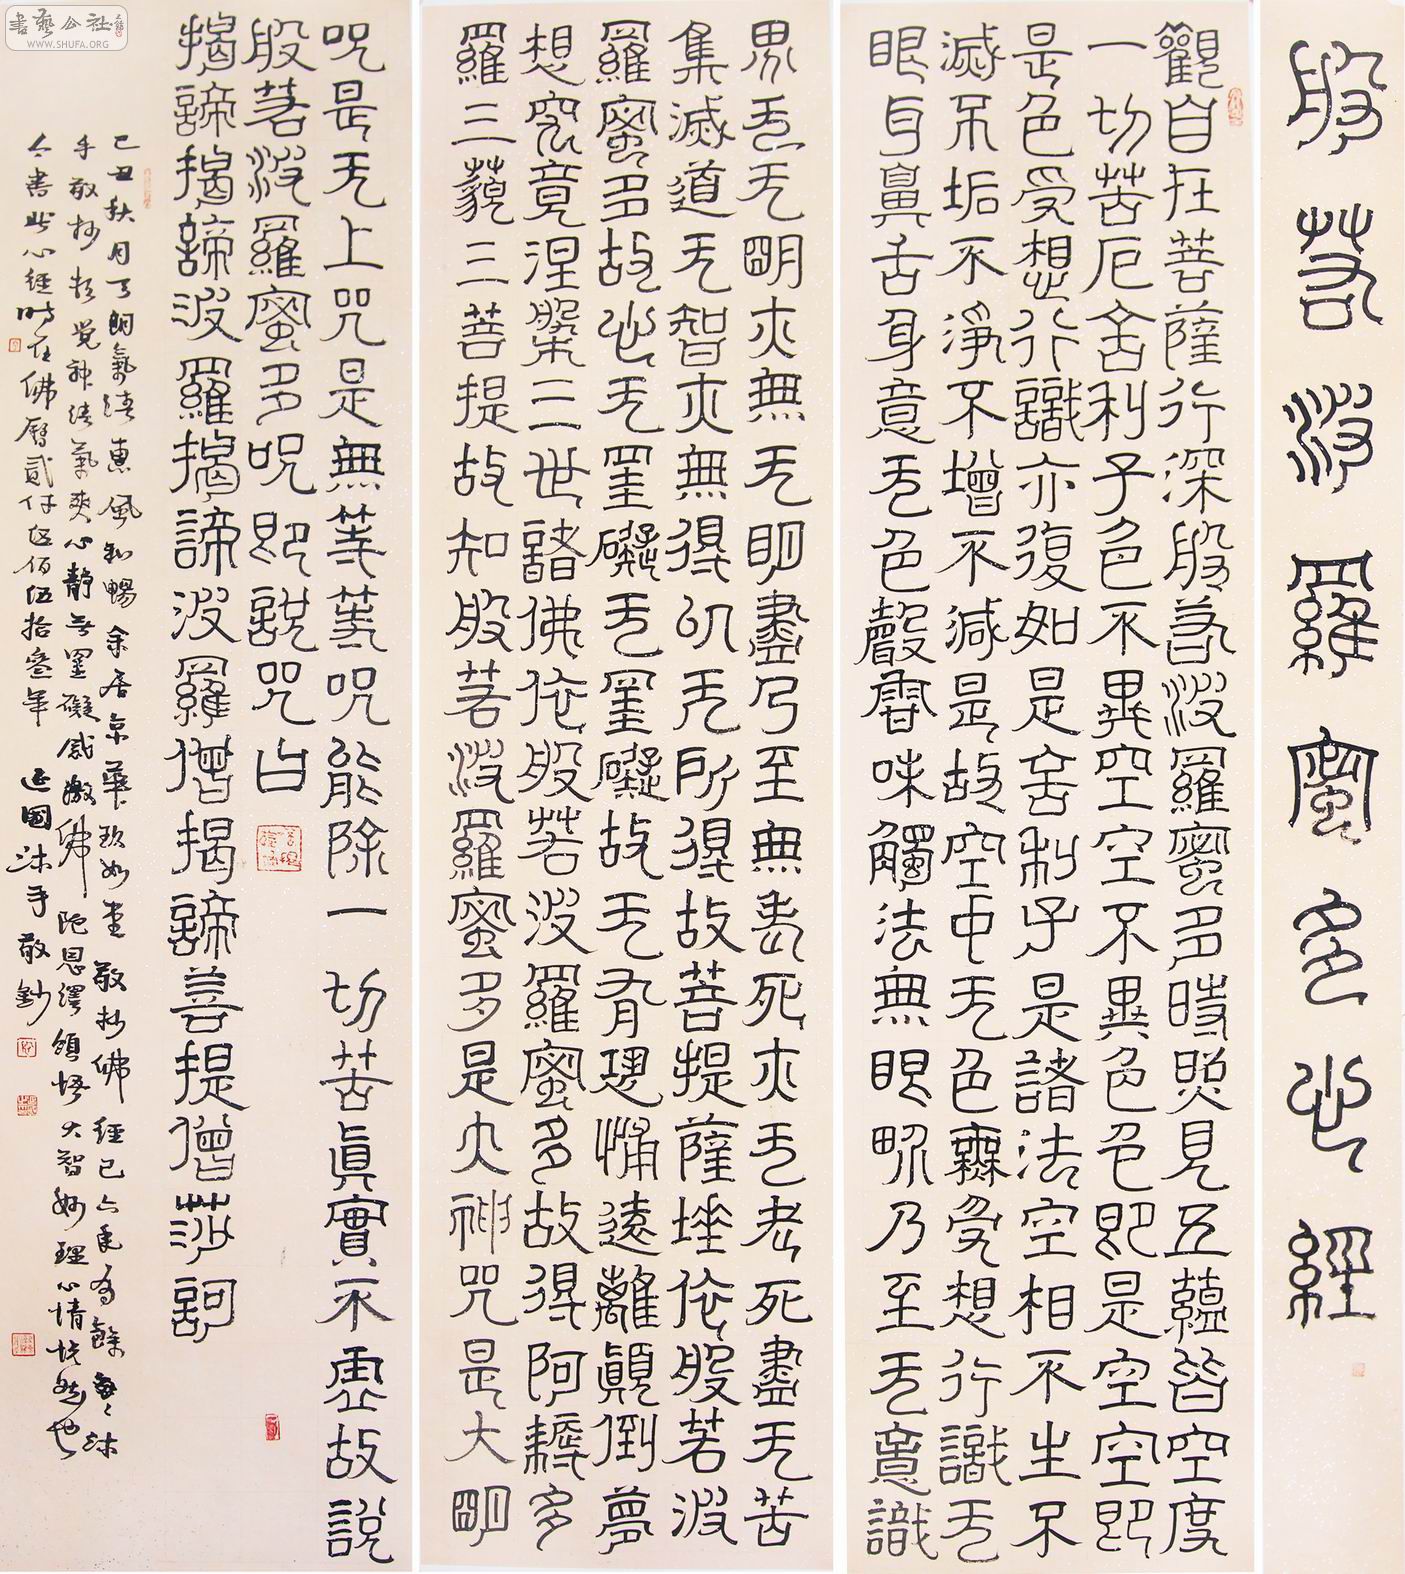 般若波羅蜜多心經
觀自在菩薩行深般若波羅蜜多時照見五蘊皆空度
一切苦厄舍利子色不異空空不異色色即是空空即
是色受想行識亦復如是舍利子是諸法空相不生不
滅不垢不淨不增不減是故空中无色無受想行識无
眼耳鼻舌身意无色聲香味觸法無眼界乃至无意識
界无无明亦無无明盡乃至無老死亦无老死盡无苦
集滅道无智亦無得以无所得故菩提薩埵依般若波
羅蜜多故心无罣礙无罣礙故无有恐怖遠離顛倒夢
想究竟涅槃三世諸佛依般若波羅蜜多故得阿耨多
羅三藐三菩提故知般若波羅蜜多是大神咒是大明
咒是无上咒是無等等咒能除一切苦眞實不虛故說
般若波羅蜜多咒即說咒曰
揭諦揭諦波羅揭諦波羅僧揭諦菩提僧莎訶
己丑秋月天朗氣清惠風和暢余居京華玖如堂敬抄佛經已六年有餘每每沐
手敬抄頗覺神清氣爽心靜無罣礙感激佛陀恩澤領悟大智妙理心情恍然也
今書此心經時在佛曆貳仟伍佰伍拾叁年 延國沐手敬鈔
書藝公社
WWW.SHUFA.ORG